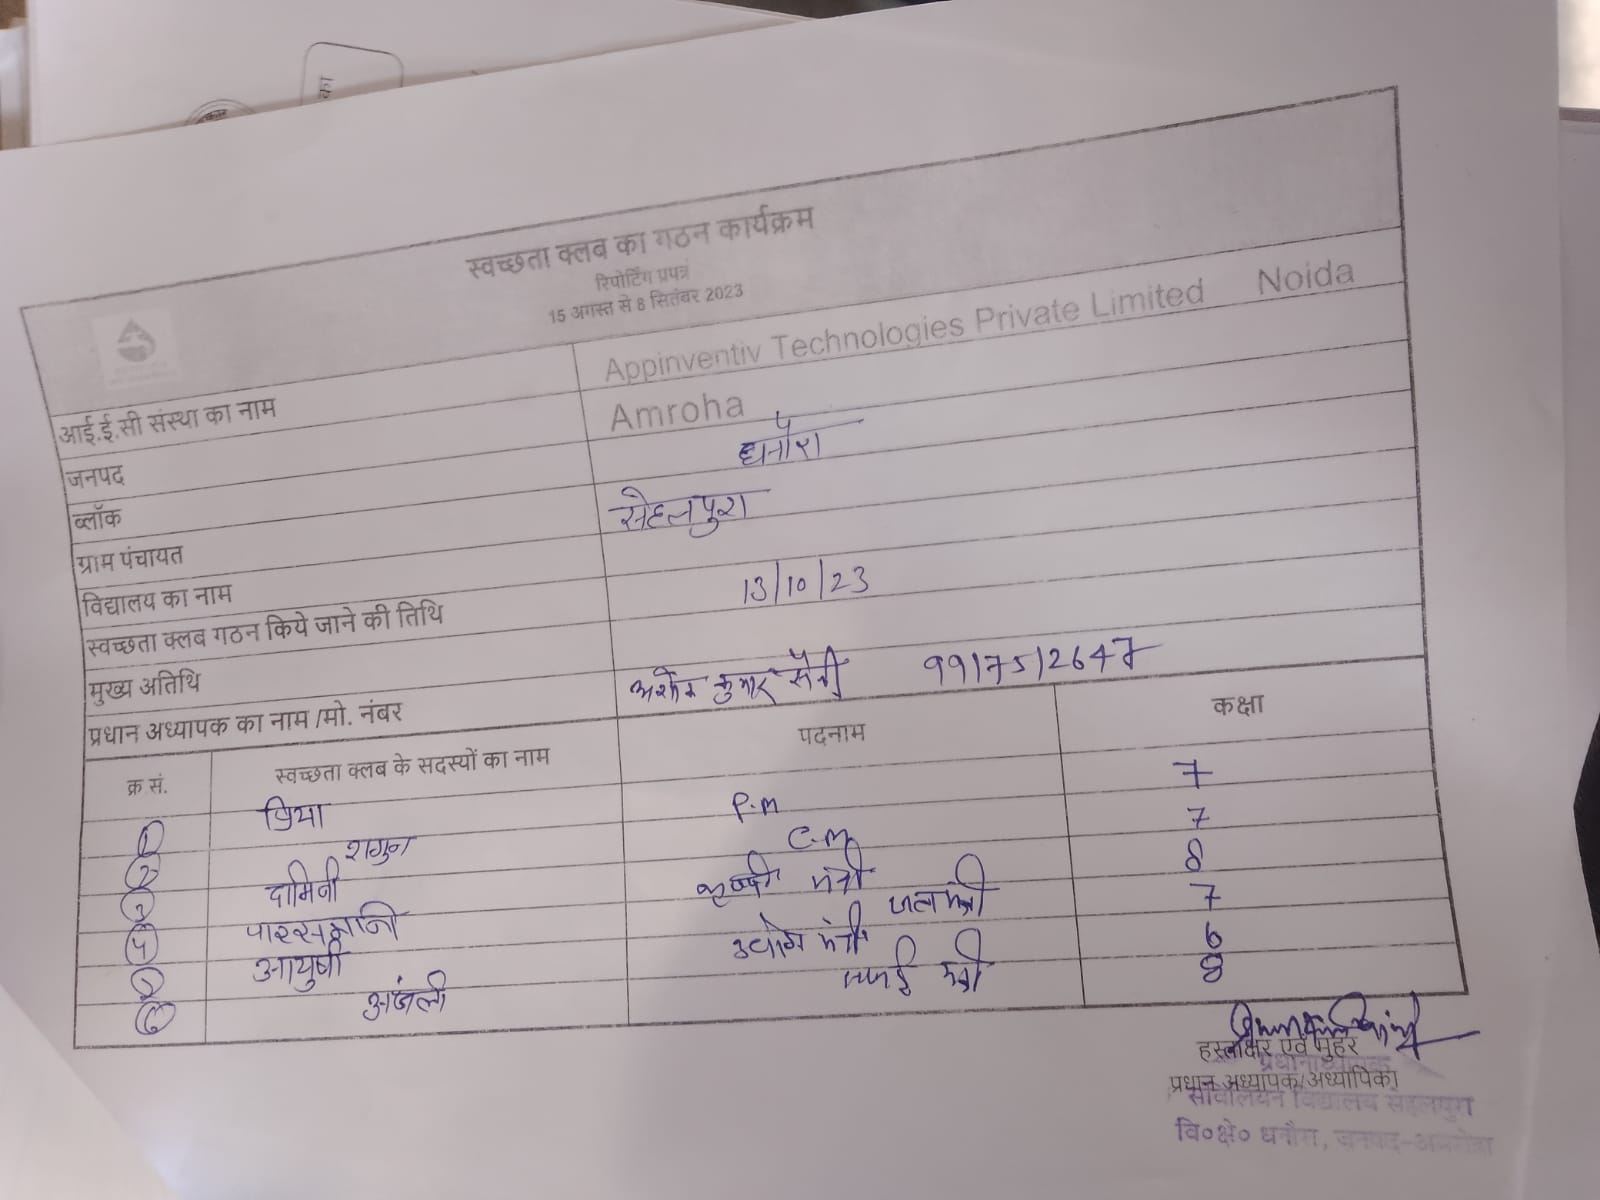 का
स्वच्छता क्लब का गठन कार्यक्रम
रिपोर्टिंग प्रपत्र
15 अगस्त से 8 सितंबर 2023
आई.ई.सी संस्था का नाम Appinventiv Technologies Private Limited Noida
जनपद Amroha
ब्लॉक धनौरा
ग्राम पंचायत सेहलपुरा
विद्यालय का नाम
स्वच्छता क्लब गठन किये जाने की तिथि 13/10/23
मुख्य अतिथि
प्रधान अध्यापक का नाम /मो. नंबर कुमार सैनी 9917512647
क्र सं. स्वच्छता क्लब के सदस्यों का नाम पदनाम कक्षा
1 प्रिया P.M 7
2 शगुन C.M 7
3 दामिनी मंत्री 8
4 जल मंत्री 7
5 आयुषी उद्योग मंत्री 6
6 अंजली सफाई मंत्री 8
हस्ताक्षर एवं मुहर
प्रधानाध्यापक
प्रधान अध्यापक/अध्यापिका
विद्यालय सेहलपुरा
वि०क्षे० धनौरा, जनपद-अमरोहा